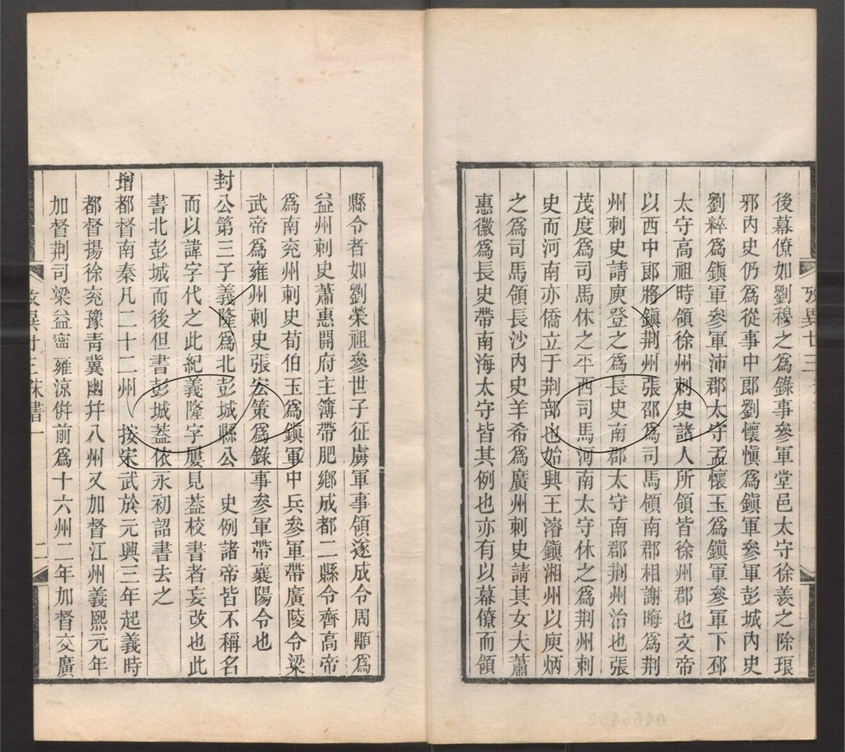 後幕僚如劉穆之爲錄事參軍堂邑太守徐羨之除琅
邪內史仍爲從事中郎劉懷愼爲鎭軍參軍彭城內史
劉粹爲鎭軍參軍沛郡太守孟懷玉爲鎭軍參軍下邳
太守高祖時領徐州刺史諸人所領皆徐州郡也文帝
以西中郎將鎭荆州張邵爲司馬領南郡相謝晦爲荆
州刺史請庾登之爲長史南郡太守南郡荆州治也張
茂度爲司馬休之平西司馬河南太守休之爲荆州刺
史而河南亦僑立于荆部也始興王濬鎭湘州以庾炳
之爲司馬領長沙內史羊希爲廣州刺史請其女夫蕭
惠徽爲長史帶南海太守皆其例也亦有以幕僚而領
攷異廿三
縣令者如劉榮祖參世子征虜軍事領遂成令周顒爲
益州刺史蕭惠開府主簿帶肥鄉成都二縣令齊高帝
爲南兖州刺史荀伯玉爲鎭軍中兵參軍帶廣陵令梁
武帝爲雍州刺史張宏策爲錄事參軍帶襄陽令也
封公第三子義隆爲北彭城縣公 史例諸帝皆不稱名
而以諱字代之此紀義隆字屢見葢校書者妄改也此
書北彭城而後但書彭城葢依永初詔書去之
增都督南秦凡二十二州 按宋武於元興三年起義時
都督揚徐兖豫靑冀幽幷八州又加督江州義熙元年
加督荆司梁益寧雍涼倂前爲十六州二年加督交廣
攷異廿三宋書一
二